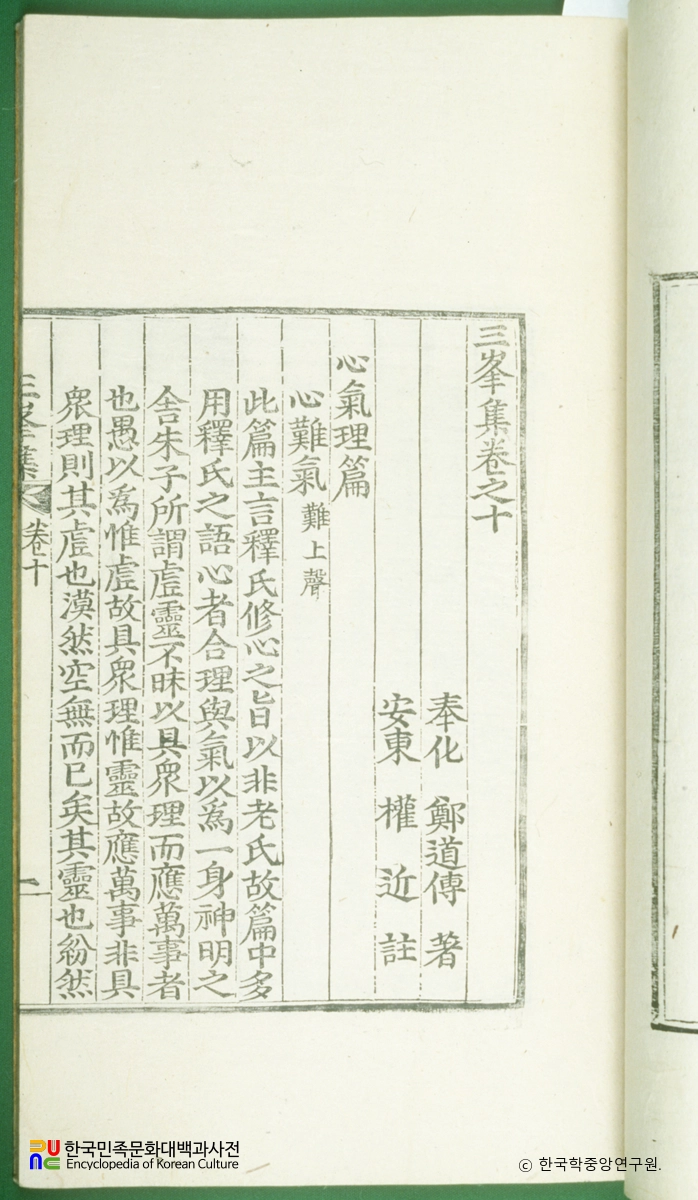 三峯集卷之十
奉化 鄭道傳 著
安東 權近 註
心氣理篇
心難氣 難上聲
此篇主言釋氏修心之旨以非老氏故篇中多
用釋氏之語心者合理與氣以爲一身神明之
舍朱子所謂虛靈不昧以具衆理而應萬事者
也愚以爲惟虛故具衆理惟靈故應萬事非具
衆理則其虛也漠然空無而已矣其靈也紛然
三峯集 卷十 一
한국민족문화대백과사전
Encyclopedia of Korean Culture
ⓒ 한국학중앙연구원.